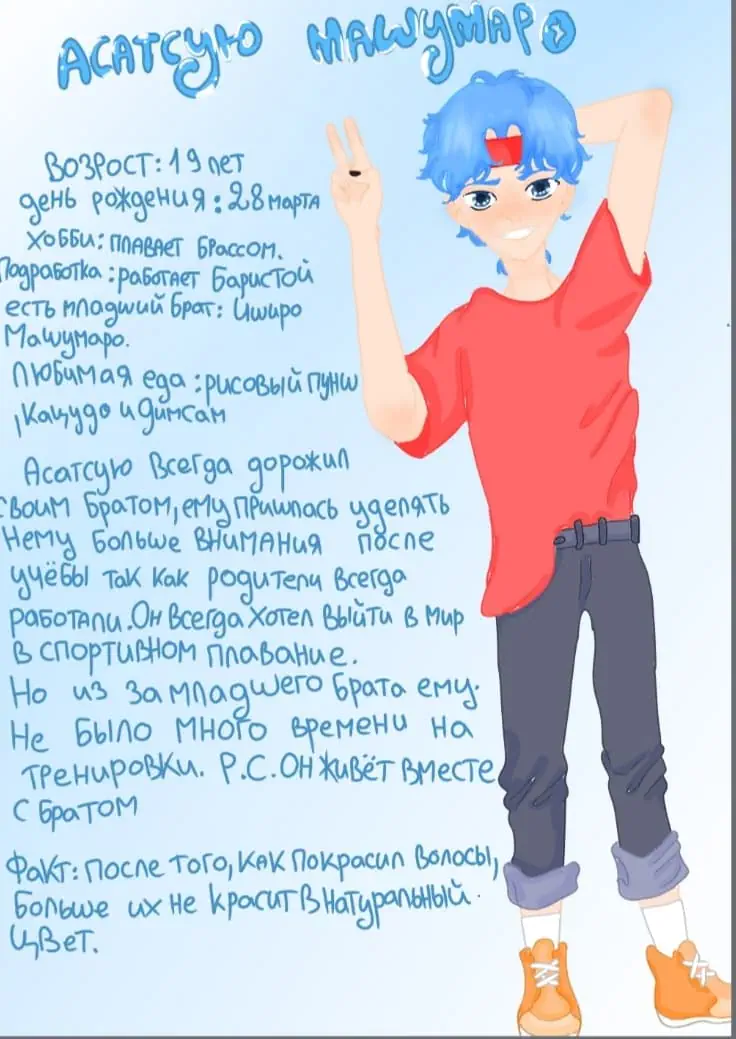 Асатсую Машумаро
Возрост: 19 лет
день рождения: 28 марта
Хобби: плавает Брассом.
Подработка: работает Баристой
есть младший брат: Иширо
Машумаро.
Любимая еда: рисовый пунш
, Кацудо и димсам
Асатсую всегда дорожил
своим братом, ему пришлась уделять
Нему больше внимания после
учёбы так как родители всегда
работали. Он всегда хотел выйти в мир
в спортивном плавание.
Но из за младшего брата ему.
Не было много времени на
тренировки. P.С. Он живёт вместе
с братом
Факт: после того, как покрасил волосы,
больше их не красит в натуральный.
Цвет.